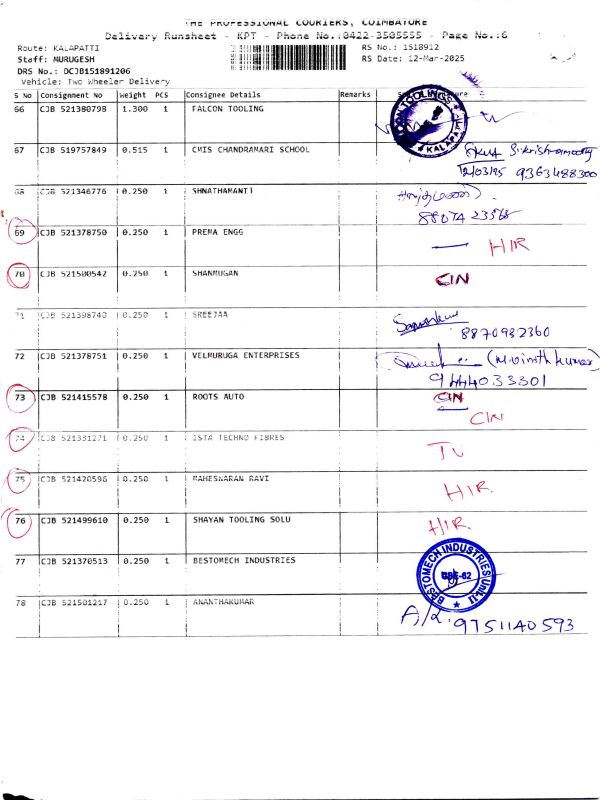 THE PROFESSIONAL COURIERS, COIMBATORE
Delivery Runsheet - KPT - Phone No.:0422-3505555 - Page No.:6
Route: KALAPATTI
RS No.: 1518912
Staff: MURUGESH
RS Date: 12-Mar-2025
DRS No.: DCJB151891206
Vehicle: Two Wheeler Delivery
S No Consignment No Weight PCS Consignee Details Remarks
66 CJB 521380798 1.300 1 FALCON TOOLING
KALAPA
67 CJB 519757849 0.515 1 CMIS CHANDRAMARI SCHOOL
12/03/25 9363488300
68 CJB 521346776 0.250 1 SHNATHAMANI
88074 23568
69 CJB 521378750 0.250 1 PREMA ENGG HIR
70 CJB 521500542 0.250 1 SHANMUGAN CIN
71 CJB 521398740 0.250 1 SREEJAA
8870932360
72 CJB 521378751 0.250 1 VELMURUGA ENTERPRISES (M.vinothkumar)
9444033301
73 CJB 521415578 0.250 1 ROOTS AUTO CIN
CIN
74 CJB 521331271 0.250 1 ISTA TECHNO FIBRES
75 CJB 521420596 0.250 1 MAHESWARAN RAVI HIR.
76 CJB 521499610 0.250 1 SHAYAN TOOLING SOLU HIR.
77 CJB 521370513 0.250 1 BESTOMECH INDUSTRIES
BESTOMECH INDUSTRIES UNIT-II
CBE-62
78 CJB 521501217 0.250 1 ANANTHAKUMAR
9751140593